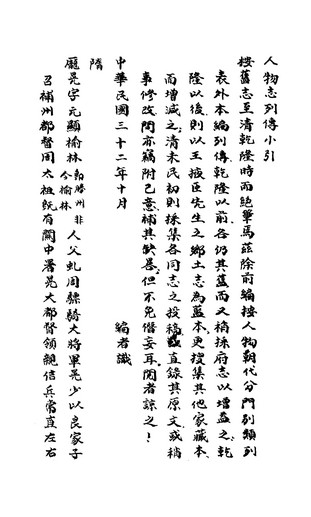 人物志列傳小引
按舊志至清乾隆時而絕筆馬茲除前編按人物朝代分門列類列
表外本編列傳乾隆以前各仍其舊而又稍採府志以增益之乾
隆以後則以王掖臣先生之鄉土志為藍本更搜集其他家藏本
而增減之清末民初則採集各同志之投稿或直錄其原文或稍
事修改間亦竊附己意補其缺畧但不免僭妄耳閱者諒之!
中華民國三十二年十月 編者識
隋
龐晃字元顯榆林勒勝州非今榆林人父虬周驃騎大將軍晃少以良家子
召補州都督周太祖既有關中署晃大都督領親信兵常直左右